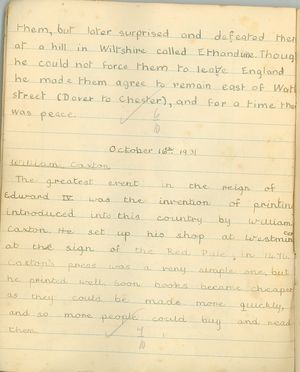 them, but later surprised and defeated them
at a hill in Wiltshire called Ethandune. Though
he could not force them to leave England
he made them agree to remain east of Watl
street (Dover to Chester), and for a time the
was peace.
6
10
October 16th 1931
William Caxton
The greatest event in the reign of
Edward IV was the invention of printing
introduced into this country by William
Caxton. He set up his shop at Westmin
at the sign of the Red Pale, in 1476.
Caxton's press was a very simple one, but
he printed well. Soon books became cheaper
as they could be made more quickly,
and so more people could buy and read
them.
7
10